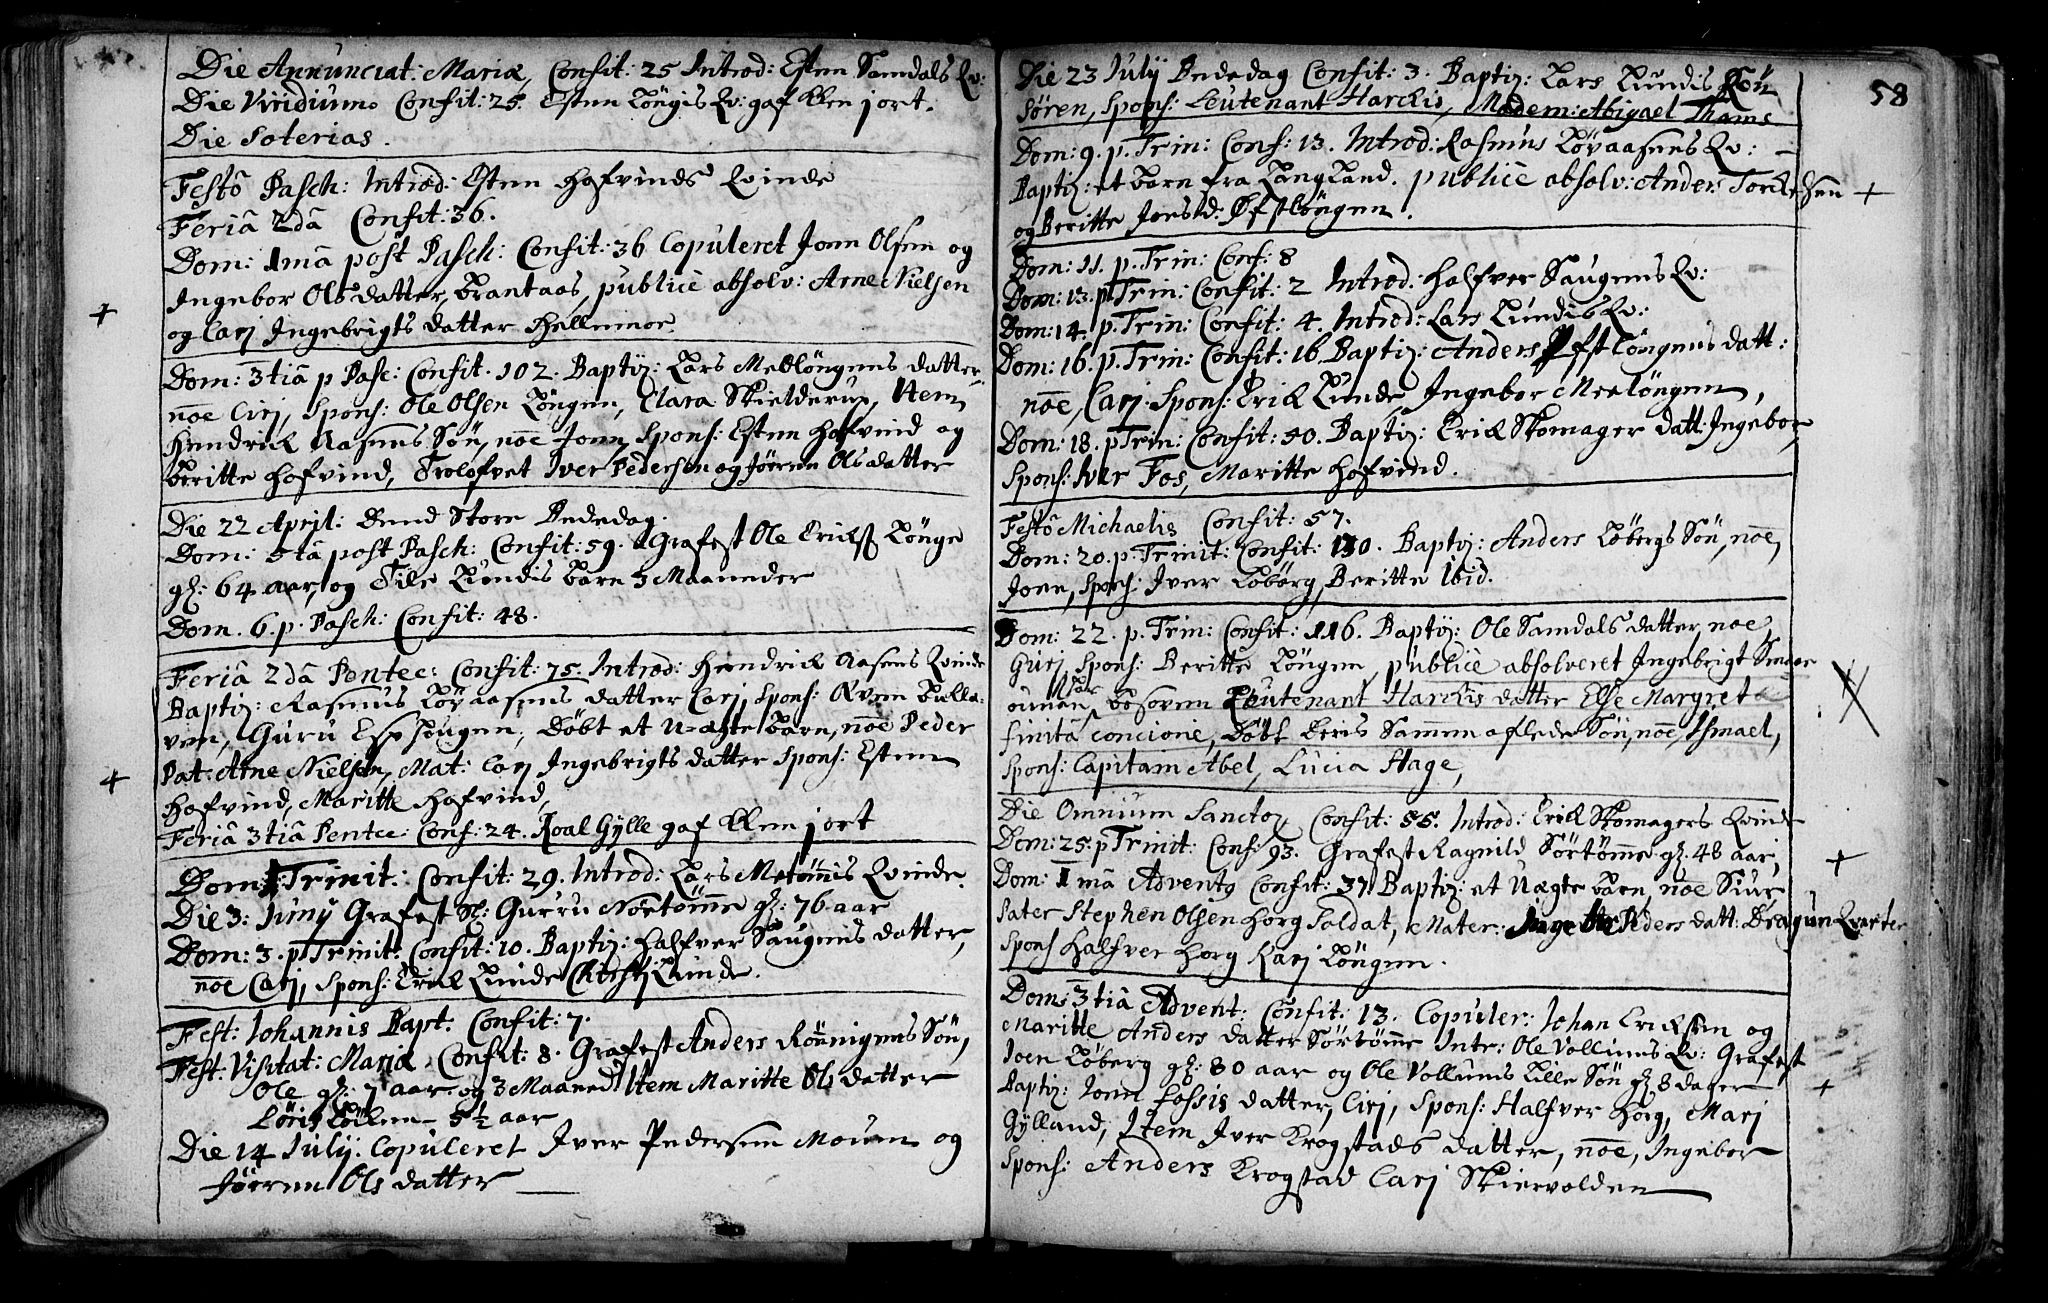 Die Annunciat: Mariæ, Confit: 25 Introd: Esten Samdals Qv:
Die Viridium. Confit: 25. Esten Löngis Qv: gaf Klen jort.
Die Soterias.
Festô Pasch: Introd: Esten Hofvinds Qvinde
Feriâ 2dâ Confit: 36.
Dom: 1mâ post Pasch: Confit: 36 Copuleret Jonn Olsen og
Ingebor Olsdatter, publicè absolv: Arne Nielsen
og Carj Ingebrigts datter Hellemoe.
Dom: 3tiâ p Pasc: Confit. 102. Baptiz: Lars Metlöngens datter
noe Cirj, Spons: Ole Olsen Löngen, Clara Skielderup, Item
Hendrick Aasens Sön, noe Jonn, Spons: Esten Hofvind og
Beritte Hofvind, Trolofvet Iver Pedersen og Jören Olsdatter
Die 22 April: Dend Store Bededag.
Dom: 5tâ post Pasch: Confit: 59. Grafest Ole Ericks: Lönge
gl: 64 aar, og Sile Lundis barn 3 Maaneder
Dom. 6. p. Pasch: Confit: 48.
Feriâ 2dâ Pentec: Confit: 75. Introd: Hendrick Aasens Qvinde
Baptiz: Rasmus Lövaasens datter Carj, Spons: Qven
ven, Guru Esphougen, Döbt et U-ægte barn, noe Peder
Pat: Arne Nielsen, Mat: Carj Ingebrigts datter Spons: Esten
Hofvind, Maritte Hofvind,
Feriâ 3tiâ Pentec: Conf: 24. Roal Gylle gaf Klen jort
Dom: Trinit: Confit: 29. Introd: Lars Metönnis Qvinde.
Die 3: Junij Grafest Sl: Gurru Nörtömme gl: 76 aar
Dom: 3. p. Trinit: Confit: 10. Baptiz: Halfver Haugens datter,
noe Carj, Spons: Erick Lunde Lunde.
Fest: Johannis Bapt. Confit: 7.
Fest. Visitat: Mariæ Confit: 8. Grafest Anders Rönnigens Sön,
Ole gl: 7 aar og 3 Maaned Item Maritte Ols datter
5½ aar
Die 14 Julij: Copuleret Iver Pedersen Mouen og
Jören Ols datter
58
Die 23 Julij Bededag Confit: 3. Baptiz: Lars Lundis Sön
Sören, Spons: Leutenant Harckis, Madem: Abigael Thams
Dom: 9. p. Trin: Conf: 13. Introd: Rasmus Lövaasens Qv:
Baptiz: et barn fra Langland. publicè absolv: Anders Torckelsen +
og Beritte Jonsd: Öfstlöngen.
Dom: 11. p. Trin: Conf: 8
Dom: 13. p Trin: Confit: 2 Introd: Halfver Haugens Qv:
Dom: 14. p. Trin: Confit: 4. Introd: Lars Lundis Qv:
Dom: 16. p. Trin: Confit: 16. Baptiz: Anders Öfstlöngens datt:
noe, Carj. Spons: Erick Lunde, Ingebor Metlöngen,
Dom: 18. p Trin: Confit: 50. Baptiz: Erick Skomager datt: Ingebor,
Spons: Iver Fos, Maritte Hofvind.
Festô Michaelis Confit: 57.
Dom: 20. p. Trinit: Confit: 130. Baptiz: Anders Löbergs Sön, noe,
Jonn, Spons: Iver Löberg, Beritte Ibid.
Dom: 22. p. Trin: Confit: 116. Baptiz: Ole Samdals datter, noe
Gurj, Spons: Beritte Löngen, publicè absolveret Ingebrigt
Leutenant Harckis datter Else Margreta
finitâ concione, Döbt Deris Sammenaflede Sön, noe, Ismael,
Spons: Capitain Abel, Lucia Hage,
Die Omnium Sanctor, Confit: 55. Introd: Erick Skomagers Qvinde
Dom: 25. p Trinit: Conf: 93. Grafest Ragnild Sörtömme gl. 48 aar,
Dom: 1mâ Adventg Confit: 37 Baptiz: et Uægte barn, noe Siur
Pater Stephen Olsen Horg Soldat, Mater: Peders datt: Dragun Qvarter
Spons Halfver Horg Karj Löngen.
Dom: 3tiâ Advent: Confit: 13. Copuler: Johan Ericksen og
Maritte Anders datter Sörtömme Intr: Ole Vollums Qv: Grafest
Joen Löberg gl: 80 aar og Ole Vollums Lille Sön gl 8 dager
Baptiz: Jonn Fossis datter, Cirj, Spons: Halfver Horg, Marj
Gylland, Item Iver Krogstads datter, noe, Ingebor
Spons: Anders Krogstad Carj Skiervolden